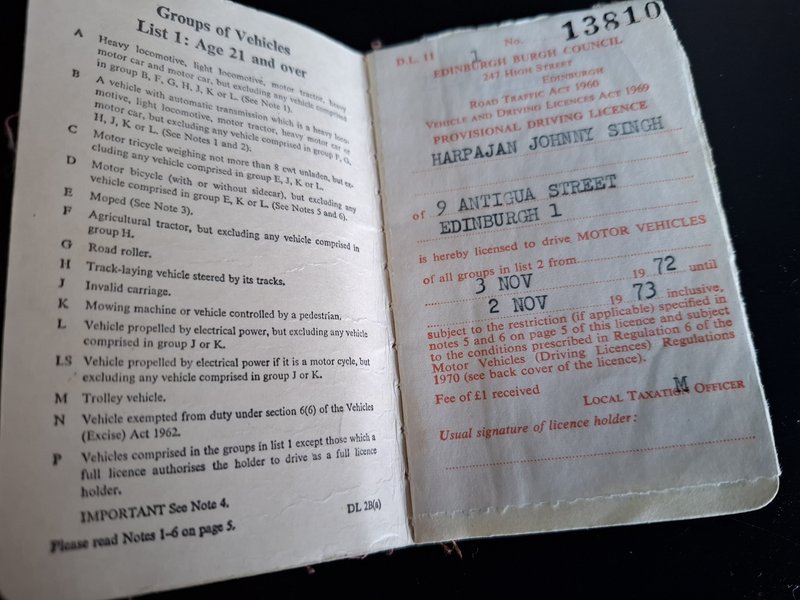 Groups of Vehicles
List 1: Age 21 and over
A Heavy locomotive, light locomotive, motor tractor, heavy
motor car and motor car, but excluding any vehicle comprised
in group B, F, G, H, J, K or L. (See Note 1).
B A vehicle with automatic transmission which is a heavy loco-
motive, light locomotive, motor tractor, heavy motor car or
motor car, but excluding any vehicle comprised in group F, G,
H, J, K or L. (See Notes 1 and 2).
C Motor tricycle weighing not more than 8 cwt unladen, but ex-
cluding any vehicle comprised in group E, J, K or L.
D Motor bicycle (with or without sidecar), but excluding any
vehicle comprised in group E, K or L. (See Notes 5 and 6).
E Moped (See Note 3).
F Agricultural tractor, but excluding any vehicle comprised in
group H.
G Road roller.
H Track-laying vehicle steered by its tracks.
J Invalid carriage.
K Mowing machine or vehicle controlled by a pedestrian.
L Vehicle propelled by electrical power, but excluding any vehicle
comprised in group J or K.
LS Vehicle propelled by electrical power if it is a motor cycle, but
excluding any vehicle comprised in group J or K.
M Trolley vehicle.
N Vehicle exempted from duty under section 6(6) of the Vehicles
(Excise) Act 1962.
P Vehicles comprised in the groups in list 1 except those which a
full licence authorises the holder to drive as a full licence
holder.
IMPORTANT See Note 4.
DL 2B(a)
Please read Notes 1-6 on page 5.
D.L. 11 1 No. 13810
EDINBURGH BURGH COUNCIL
247 HIGH STREET
EDINBURGH
ROAD TRAFFIC ACT 1960
VEHICLE AND DRIVING LICENCES ACT 1969
PROVISIONAL DRIVING LICENCE
HARPAJAN JOHNNY SINGH
of 9 ANTIGUA STREET
EDINBURGH 1
is hereby licensed to drive MOTOR VEHICLES
of all groups in list 2 from
3 NOV 19 72 until
2 NOV 19 73 inclusive,
subject to the restriction (if applicable) specified in
notes 5 and 6 on page 5 of this licence and subject
to the conditions prescribed in Regulation 6 of the
Motor Vehicles (Driving Licences) Regulations
1970 (see back cover of the licence).
M
Fee of £1 received LOCAL TAXATION OFFICER
Usual signature of licence holder: